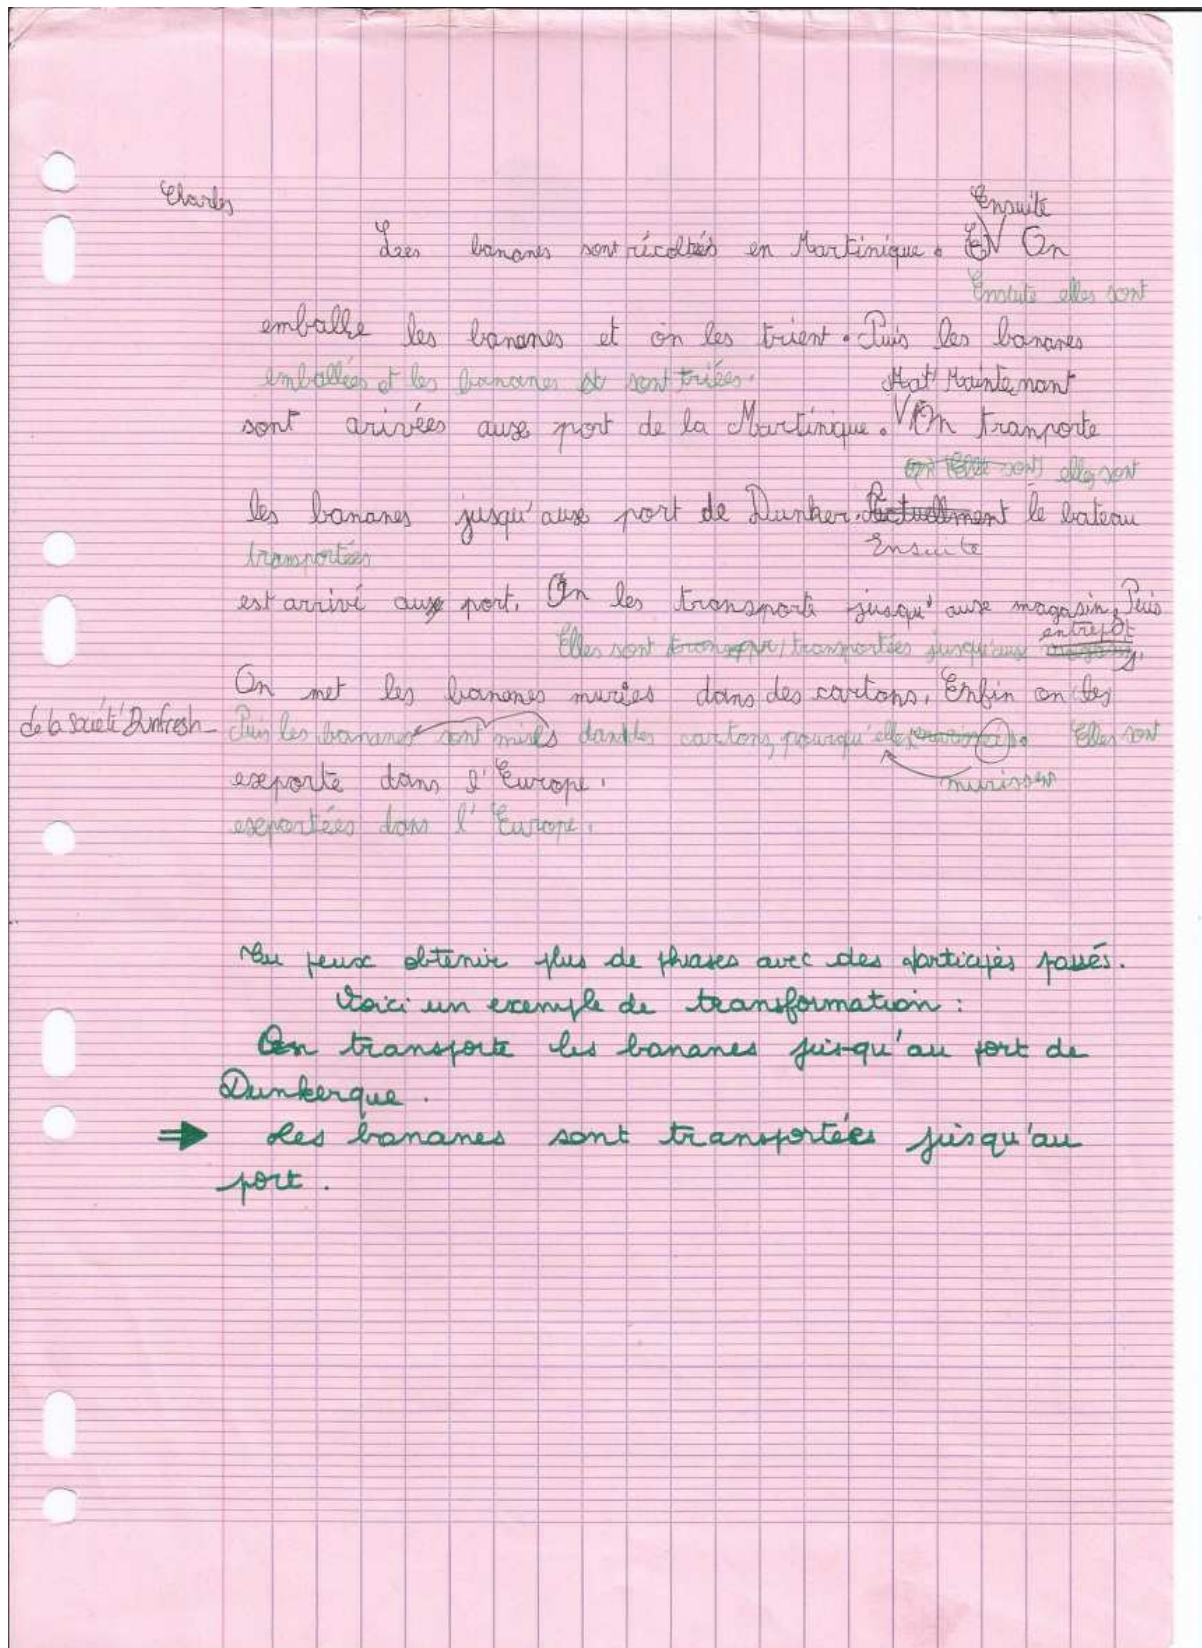 Charles
Ensuite
Les bananes sont récoltés en Martinique. On
Ensiute elles sont
emballe les bananes et on les trient. Puis les bananes
emballées et les bananes sont triées.
Mat Maintenant
sont arivées aux port de la Martinique. On tranporte
elles sont
les bananes jusqu'aux port de Dunker. Actuellment le bateau
transportées
Ensuite
est arrivé aux port. On les transporte jusqu'aux magasin. Puis
entrepôt
Elles sont transportées jusqu'aux
On met les bananes muries dans des cartons. Enfin on les
de la société Dunfresh
Puis les bananes sont mises dans des cartons, pourqu'elle Elles sont
exporte dans l'Europe.
murissen
exportées dans l'Europe.
Tu peux obtenir plus de phrases avec des participes passés.
Voici un exemple de transformation :
On transporte les bananes jusqu'au port de
Dunkerque.
⇒ Les bananes sont transportées jusqu'au
port.